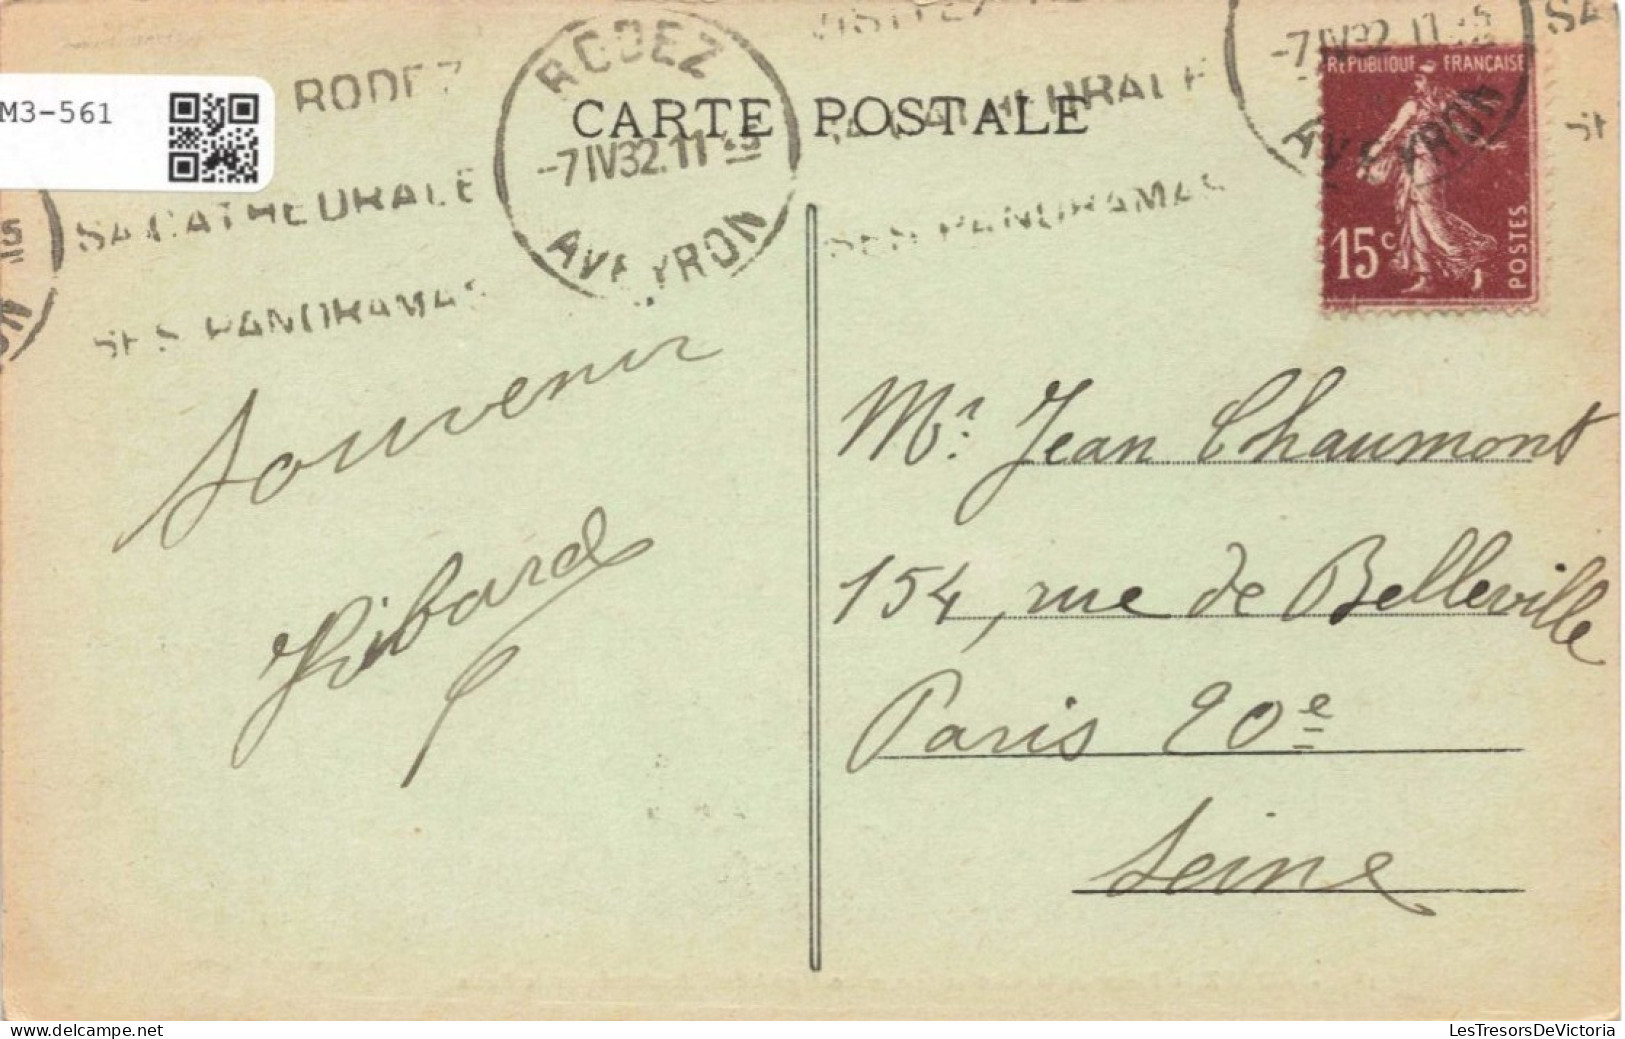 M3-561
RODEZ
SA CATHEDRALE
SES PANORAMAS
RODEZ
-7 IV 32. 11
AVEYRON
CARTE POSTALE
CATHEDRALE
SES PANORAMAS
-7 IV 32 11
AVEYRON
REPUBLIQUE FRANÇAISE
15c
POSTES
Souvenir
Mr. Jean Chaumont
154, rue de Belleville
Paris 20e
Seine
LesTresorsDeVictoria